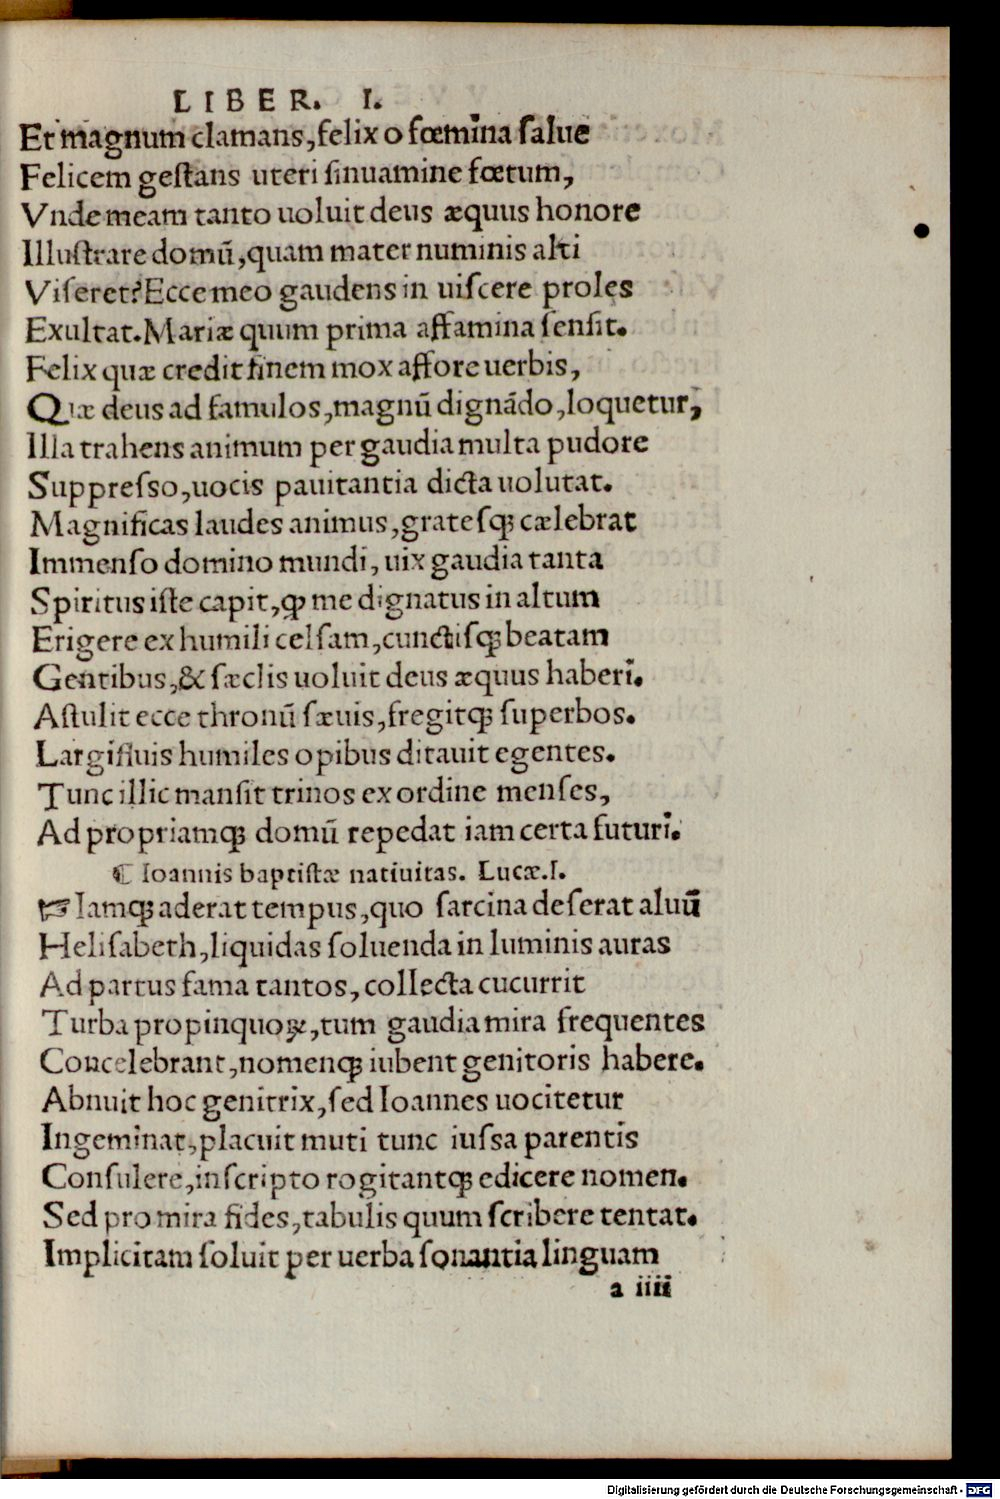 LIBER. I.
Et magnum clamans, felix o fœmina salue
Felicem gestans uteri sinuamine fœtum,
Vnde meam tanto uoluit deus æquus honore
Illustrare domū, quam mater numinis alti
Viseret? Ecce meo gaudens in uiscere proles
Exultat. Mariæ quum prima affamina sensit.
Felix quæ credit finem mox affore uerbis,
Quæ deus ad famulos, magnū dignādo, loquetur,
Illa trahens animum per gaudia multa pudore
Suppresso, uocis pauitantia dicta uolutat.
Magnificas laudes animus, gratesꝗ cælebrat
Immenso domino mundi, uix gaudia tanta
Spiritus iste capit, ꝙ me dignatus in altum
Erigere ex humili celsam, cunctisꝗ beatam
Gentibus, & sæclis uoluit deus æquus haberi.
Astulit ecce thronū sæuis, fregitꝗ superbos.
Largifluis humiles opibus ditauit egentes.
Tunc illic mansit trinos ex ordine menses,
Ad propriamꝗ domū repedat iam certa futuri.
¶ Ioannis baptistæ natiuitas. Lucæ. I.
☞ Iamꝗ aderat tempus, quo sarcina deserat aluū
Helisabeth, liquidas soluenda in luminis auras
Ad partus fama tantos, collecta cucurrit
Turba propinquoꝝ, tum gaudia mira frequentes
Concelebrant, nomenꝗ iubent genitoris habere.
Abnuit hoc genitrix, sed Ioannes uocitetur
Ingeminat, placuit muti tunc iussa parentis
Consulere, in scripto rogitantꝗ edicere nomen.
Sed pro mira fides, tabulis quum scribere tentat.
Implicitam soluit per uerba sonantia linguam
a iiii
Digitalisierung gefördert durch die Deutsche Forschungsgemeinschaft - DFG